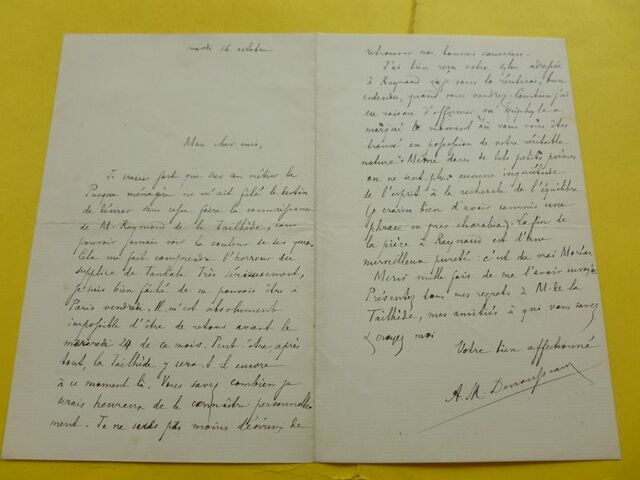 mardi 16 octobre
Mon cher ami,
Je crains fort que sur son métier la
Parque ménagère ne m'ait filé le destin
de désirer sans cesse faire la connaissance
de M. Raymond de la Tailhède, sans
pouvoir jamais voir la couleur de ses yeux.
Cela me fait comprendre l'horreur du
supplice de Tantale. Très sérieusement,
je suis bien fâché de ne pouvoir être à
Paris vendredi. Il m'est absolument
impossible d'être de retour avant le
mercredi 24 de ce mois. Peut-être, après
tout, la Tailhède y sera-t-il encore
à ce moment là. Vous savez combien je
serais heureux de le connaître personnelle-
ment. Je ne serais pas moins désireux de
retrouver nos bonnes causeries.
J'ai bien reçu votre adressée
à Raynaud vous la réciterai, bien
entendu, quand vous viendrez. Combien j'ai
eu raison d'affirmer qu' Eriphyle a
marqué le moment où vous vous êtes
trouvé en possession de votre véritable
nature. Même dans de tels petits poèmes
on ne sent plus aucune inquiétude
de l'esprit à la recherche de l'équilibre
(je crains bien d'avoir commis une
phrase en pur charabia). La fin de
la pièce à Raynaud est d'une
merveilleuse pureté: c'est du vrai Moréas
Merci mille fois de me l'avoir envoyée
Présentez tous mes regrets à M. de la
Tailhède, mes amitiés à qui vous savez
& croyez moi
Votre bien affectionné
A. M. Desrousseaux